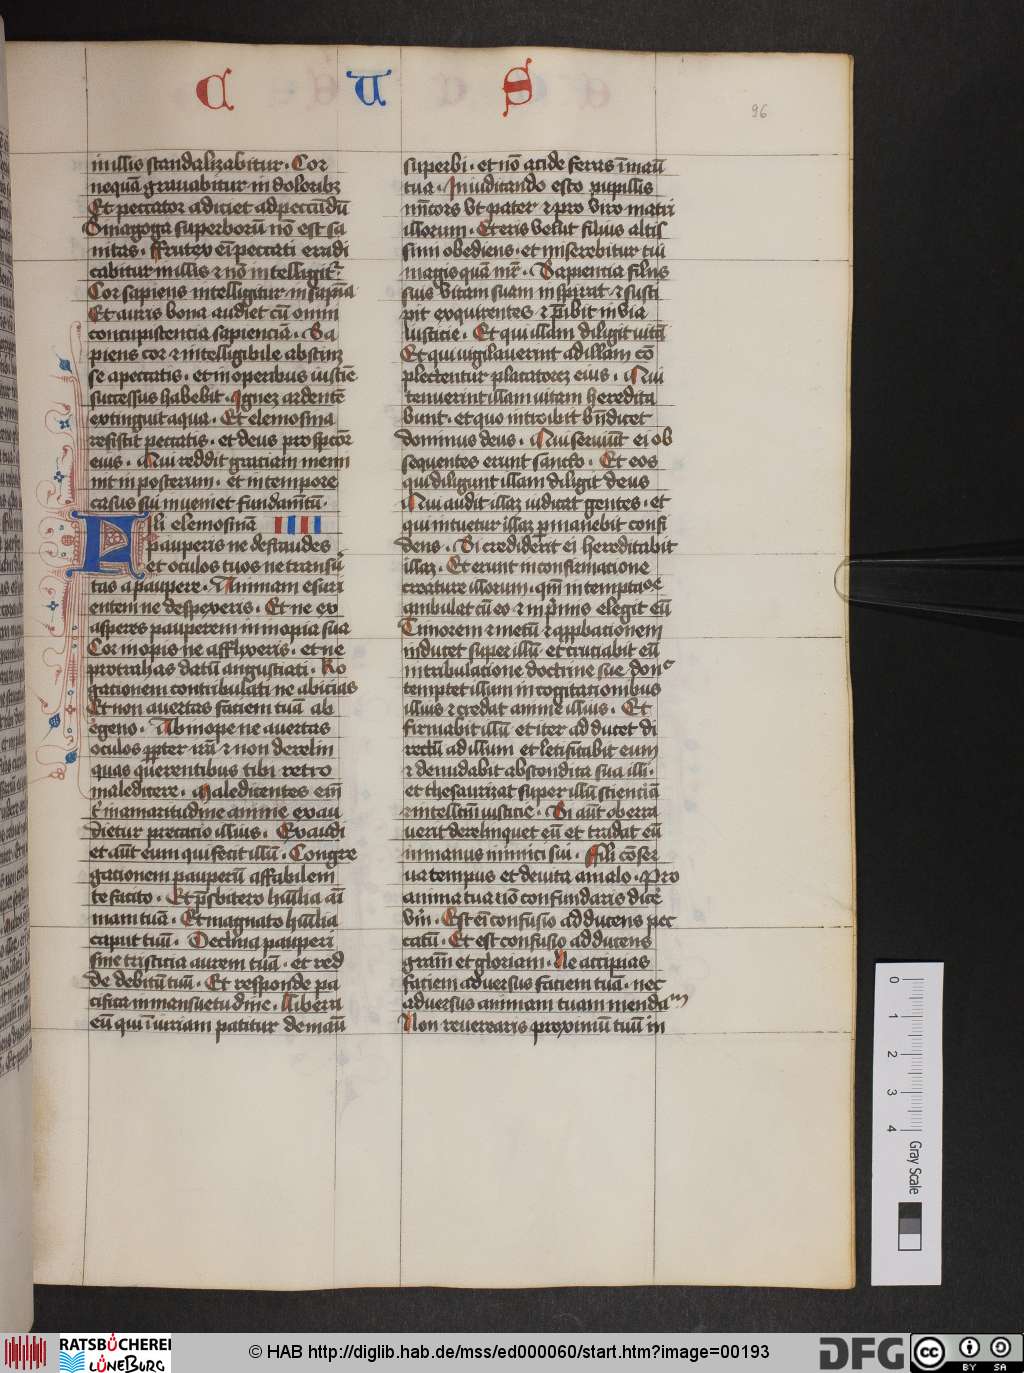 C U S
96
in illis scandalizabitur · Cor
nequā gravabitur in doloribꝫ
Et peccator adiciet ad peccādū
Sinagoga superborū nō est sa
nitas · ffrutex ei̅ peccati eradi
cabitur in illis ⁊ nō intelligit̉
Cor sapiens intelligitur in sapīa
Et auris bona audiet cū omni
concupiscencia sapienciā · Sa
piens cor ⁊ intelligibile abstinꝫ
se a peccatis · et in operibus iusticē
successus habebit · Ignez ardentē
extinguit aqua · Et elemosina
resistit peccatis · et deus prospcōr
eius · Qui reddit graciam memi
nit in posterum · et in tempore
casus sui inveniet fundamētū ·
Fili elemosinā IIII
pauperis ne defraudes
et oculos tuos ne transū
tas a paupere · Animam esuri
entem ne despexeris · Et ne ex
asperes pauperem in inopia sua
Cor inopis ne afflixeris · et ne
protrahas datū angustiati · Ro
gationem contribulati ne abicias
Et non avertas faciem tuā ab
egeno · Ab inope ne avertas
oculos ꝓpter irā ⁊ non derelin
quas querentibus tibi retro
maledicere · Maledicentes em̄
t̉ in amaritudine anime exau
dietur precacio illius · Exaudi
et aūt eum qui fecit illū · Congre
gationem pauperū affabilem
te facito · Et p̄sbitero hūilia ai
mam tuā · Et magnato hūilia
caput tuū · Declina pauperi
sine tristicia aurem tuā · et red
de debitū tuū · Et responde pa
cifica in mansuetudine · Libera
eū qui īiuriam patitur de manū
superbi · et nō acide feras ī maū
tua · In iudicando esto pupillis
mīcors vt pater ⁊ pro viro matri
illorum · Et eris velut filius altis
simi obediens · et miserebitur tui
magis quā mr̄ · Sapiencia filiis
suis vitam suam inspirat ⁊ susci
pit exquirentes ⁊ p̄ibit in via
Iusticie · Et qui illam diligit vitā
Et qui vigilaverint ad illam cō
plectentur placatorez eius · Qui
tenuerint illam vitam heredita
bunt · et quo introibit bn̄dicet
dominus deus · Qui serviūt ei ob
sequentes erunt sancto · Et eos
qui diligunt illam diligit deus
Qui audit illaꝫ iudicat gentes · et
qui intuetur illaꝫ ꝑmanebit confi
dens · Si crediderit ei hereditabit
illaꝫ · Et erunt in confirmacione
creature illorum · qm̄ in temptacōe
ambulat cū eo ⁊ in p̄mis elegit eū
Timorem ⁊ metū ⁊ ꝓbationem
inducet super illū et cruciabit eū
in tribulacione doctrine sue donc
temptet illum in cogitationibus
illius ⁊ credat anime illius · Et
firmabit illū et iter adducet di
rectū ad illum et letificabit eum
⁊ denudabit abscondita sua illi ·
et thesaurizat super illū scienciā
⁊ intellctū iusticie · Si aūt oberra
verit derelinquet eū et tradat eū
in manus inimici sui · Fili cōser
va tempus et devita a malo · Pro
anima tua nō confundaris dicē
vm̄ · Est ei̅ confusio adducens pec
catū · Et est confusio adducens
gratiā et gloriam · Ne accipias
faciem adversus faciem tuā · nec
adversus animam tuam mendacm̄
Non reverearis proximū tuū in
0 1 2 3 4 Gray Scale
RATSBÜCHEREI
LÜNEBURG
© HAB http://diglib.hab.de/mss/ed000060/start.htm?image=00193
DFG
cc BY SA